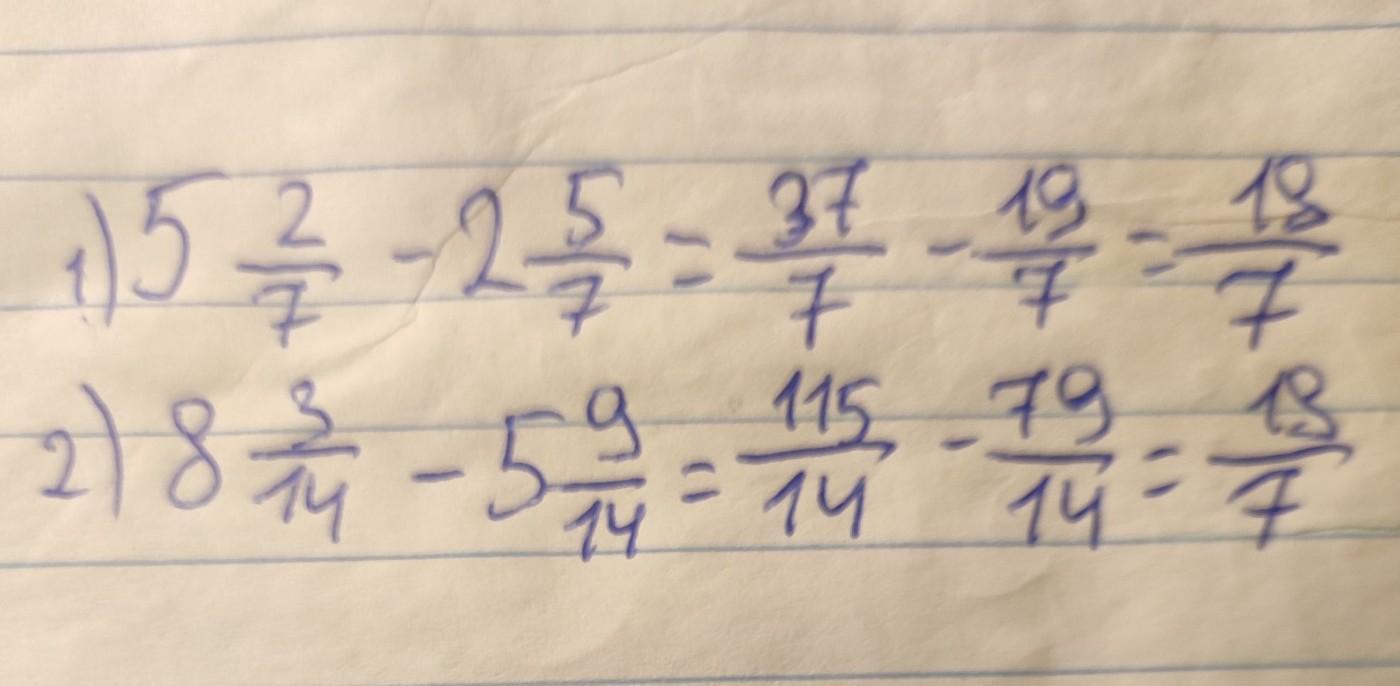 1) 5 2/7 - 2 5/7 = 37/7 - 19/7 = 18/7
2) 8 3/14 - 5 9/14 = 115/14 - 79/14 = 18/7